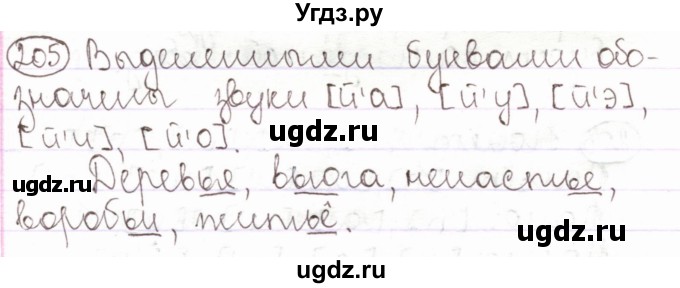 Угдз.ру
205 Выделенными буквами обо-
значены звуки [й'а], [й'у], [й'э],
[й'и], [й'о].
ugdz.ru
ugdz.ru
ugdz.ru
Деревья, вьюга, ненастье,
воробьи, житьё.
ugdz.ru
ugdz.ru
ugdz.ru